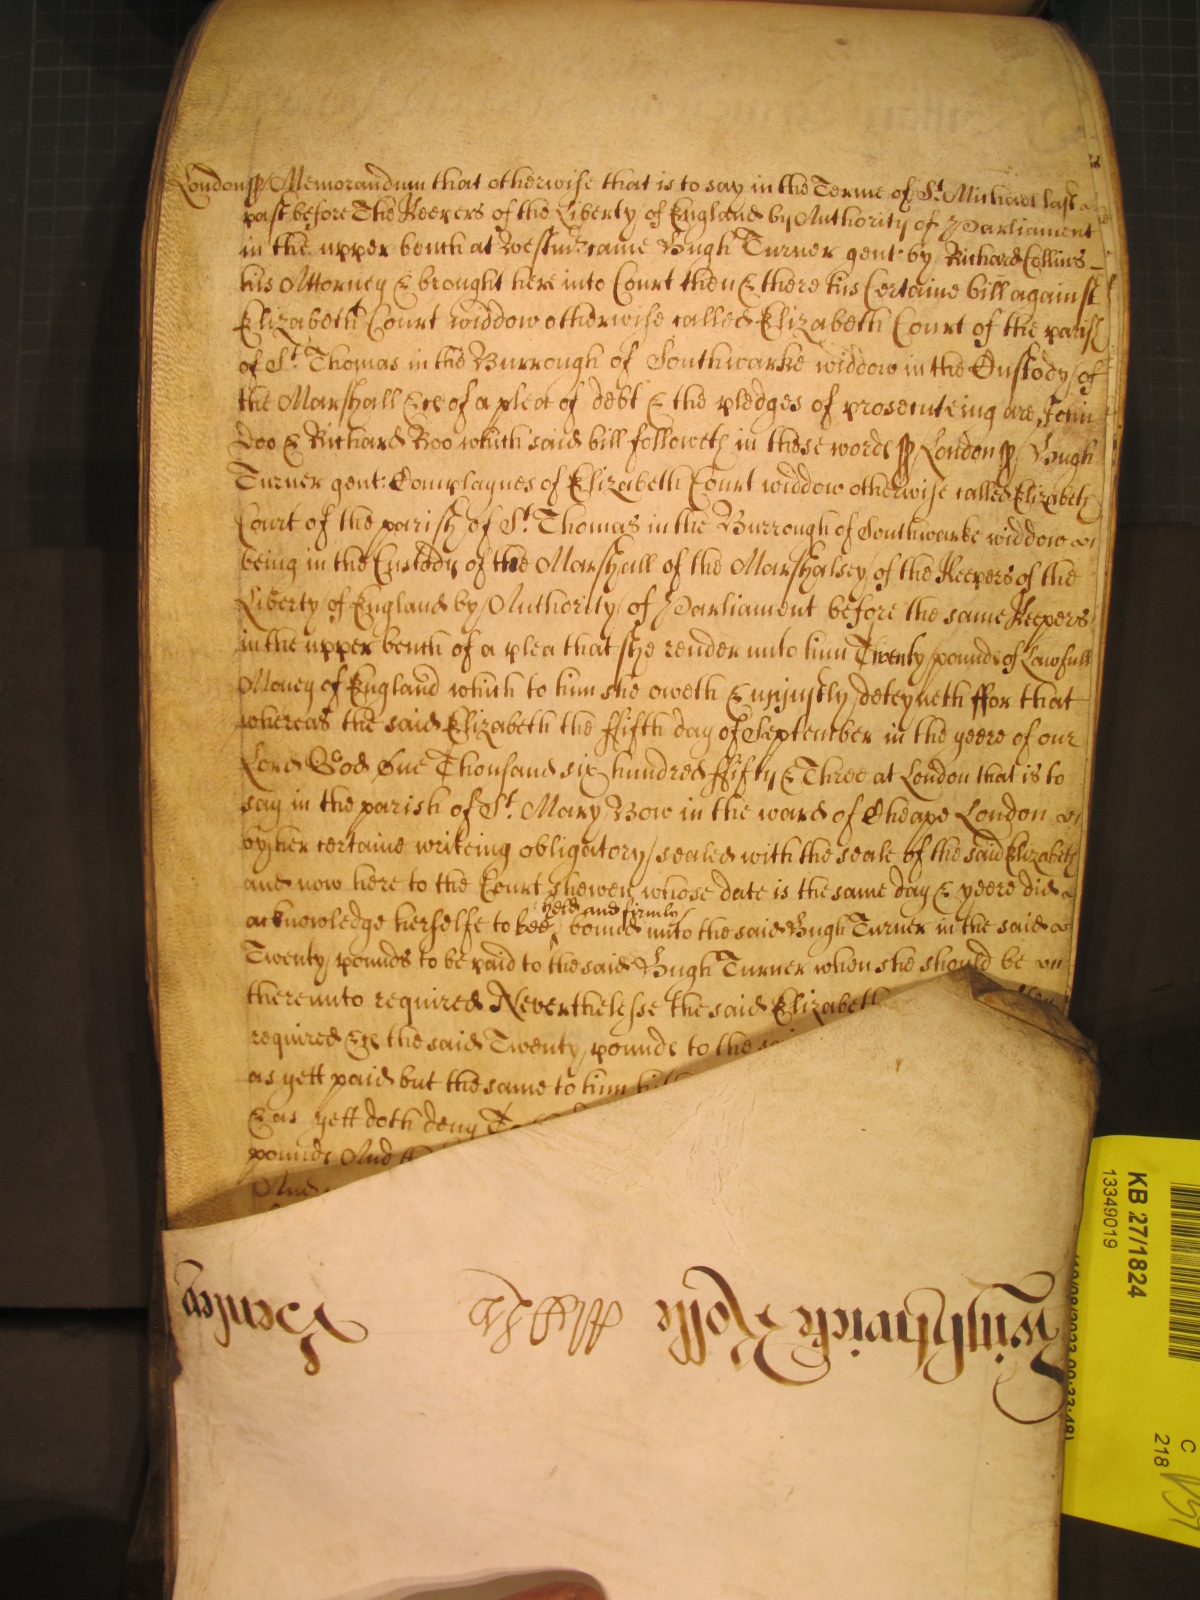 London ss Memorandum that otherwise that is to say in the Terme of St. Michael last
past before The Keepers of the Liberty of England by Authority of Parliament
in the upper bench at Westmr. came Hugh Turner gent: by Richard Collins
his Attorney & brought here into Court then & there his Certaine bill against
Elizabeth Court widdow otherwise called Elizabeth Court of the parish
of St. Thomas in the Burrough of Southwarke widdow in the Custody of
the Marshall &c of a plea of debt & the pledges of prosecuteing are John
Doo & Richard Roo which said bill followeth in these words ss London ss Hugh
Turner gent: Complaynes of Elizabeth Court widdow otherwise called Elizabeth
Court of the parish of St. Thomas in the Burrough of Southwarke widdow
being in the Custody of the Marshall of the Marshalsey of the Keepers of the
Liberty of England by Authority of Parliament before the same Keepers
in the upper bench of a plea that she render unto him Twenty pounds of Lawfull
Money of England which to him she oweth & unjustly deteyneth ffor that
whereas the said Elizabeth the ffifth day of September in the yeere of our
Lord God One Thousand six hundred ffifty & Three at London that is to
say in the parish of St. Mary Bow in the ward of Cheape London
by her certaine writeing obligatory sealed with the seale of the said Elizabeth
and now here to the Court shewen whose date is the same day & yeere did
acknowledge herselfe to bee held and firmly bound unto the said Hugh Turner in the said
Twenty pounds to be paid to the said Hugh Turner when she should be
thereunto required Neverthelesse the said Elizabeth
required &c the said Twenty pounds to the
as yett paid but the same to him
& as yett doth deny
pounds And
And
Rolle
KB 27/1824
13349019
C
218